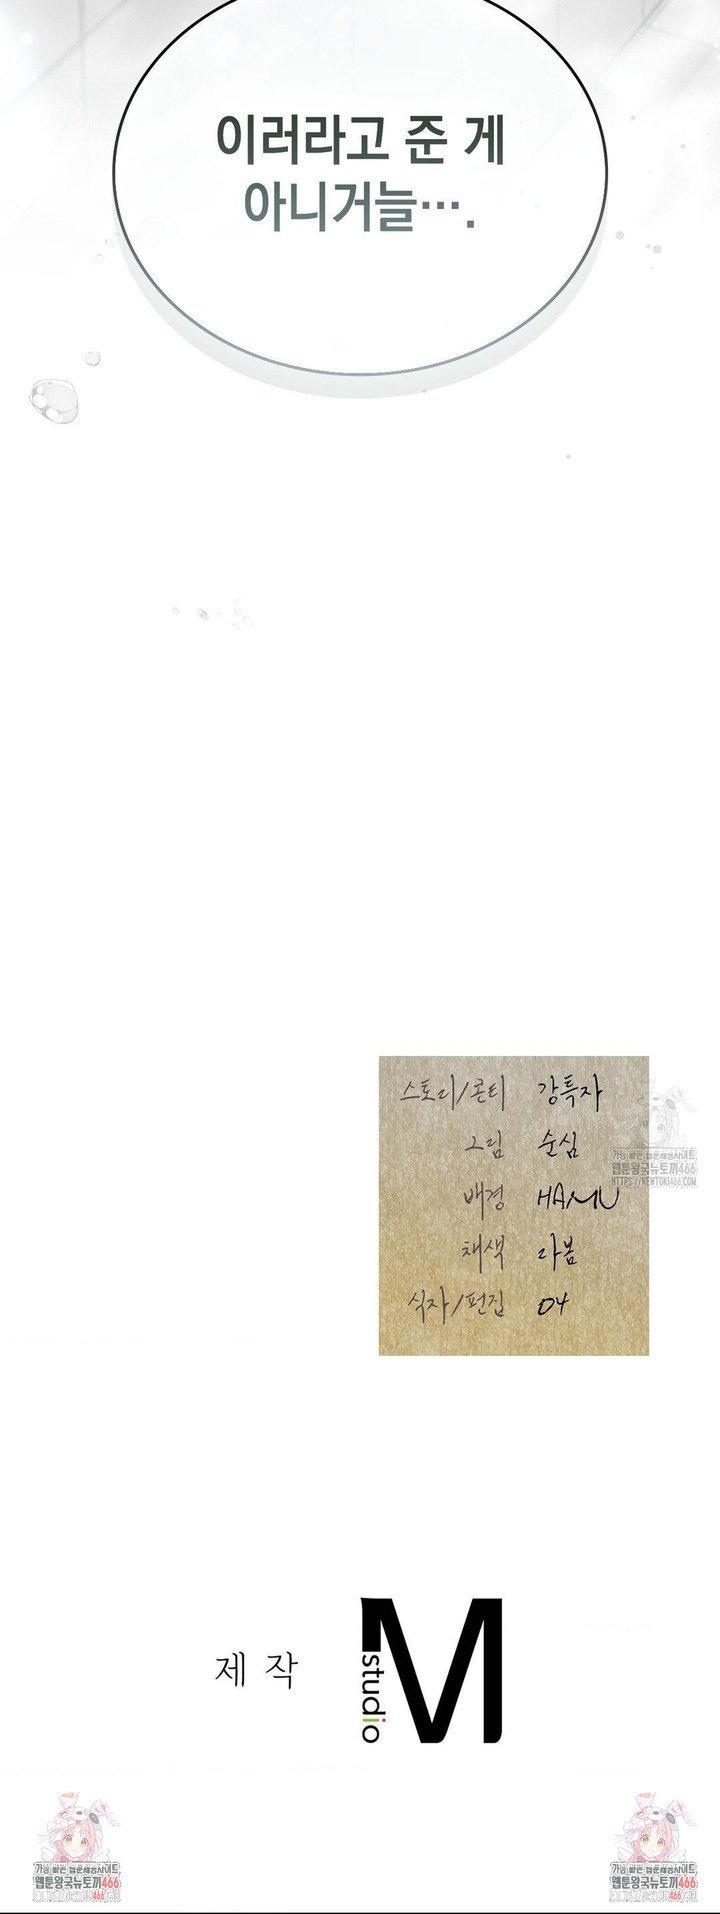 이러라고 준 게
아니거늘….
스토리/콘티 강특자
그림 순심
배경 HAMU
채색 라봄
식자/편집 04
가장 빠른 웹툰제공사이트
웹툰왕국뉴토끼466
HTTPS://NEWTOKI466.COM
제작
M studio
웹툰왕국뉴토끼466
웹툰왕국뉴토끼466